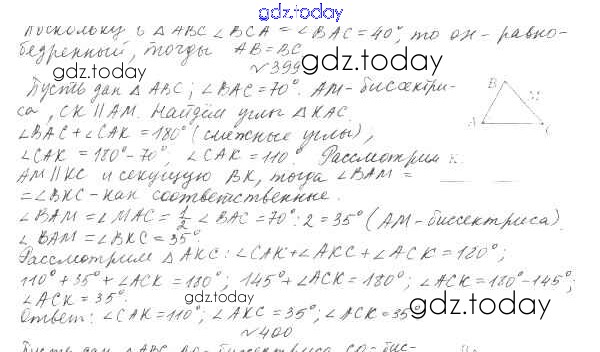 gdz.today
Поскольку в △ABC ∠BCA = ∠BAC = 40°, то он - равно-
бедренный, тогда AB = BC.
gdz.today
№399
gdz.today
Пусть дан △ABC; ∠BAC = 70°. AM - биссектри-
са, CK ∥ AM. Найдём углы △KAC.
B
A
∠BAC + ∠CAK = 180° (смежные углы),
∠CAK = 180° - 70°, ∠CAK = 110°. Рассмотрим
AM ∥ KC и секущую BK, тогда ∠BAM =
= ∠BKC - как соответственные.
∠BAM = ∠MAC = 1/2 ∠BAC = 70° : 2 = 35° (AM - биссектриса).
∠BAM = ∠BKC = 35°.
Рассмотрим △AKC: ∠CAK + ∠AKC + ∠ACK = 180°;
110° + 35° + ∠ACK = 180°; 145° + ∠ACK = 180°; ∠ACK = 180° - 145°;
∠ACK = 35°.
gdz.today
gdz.today
Ответ: ∠CAK = 110°; ∠AKC = 35°; ∠ACK = 35°
№400